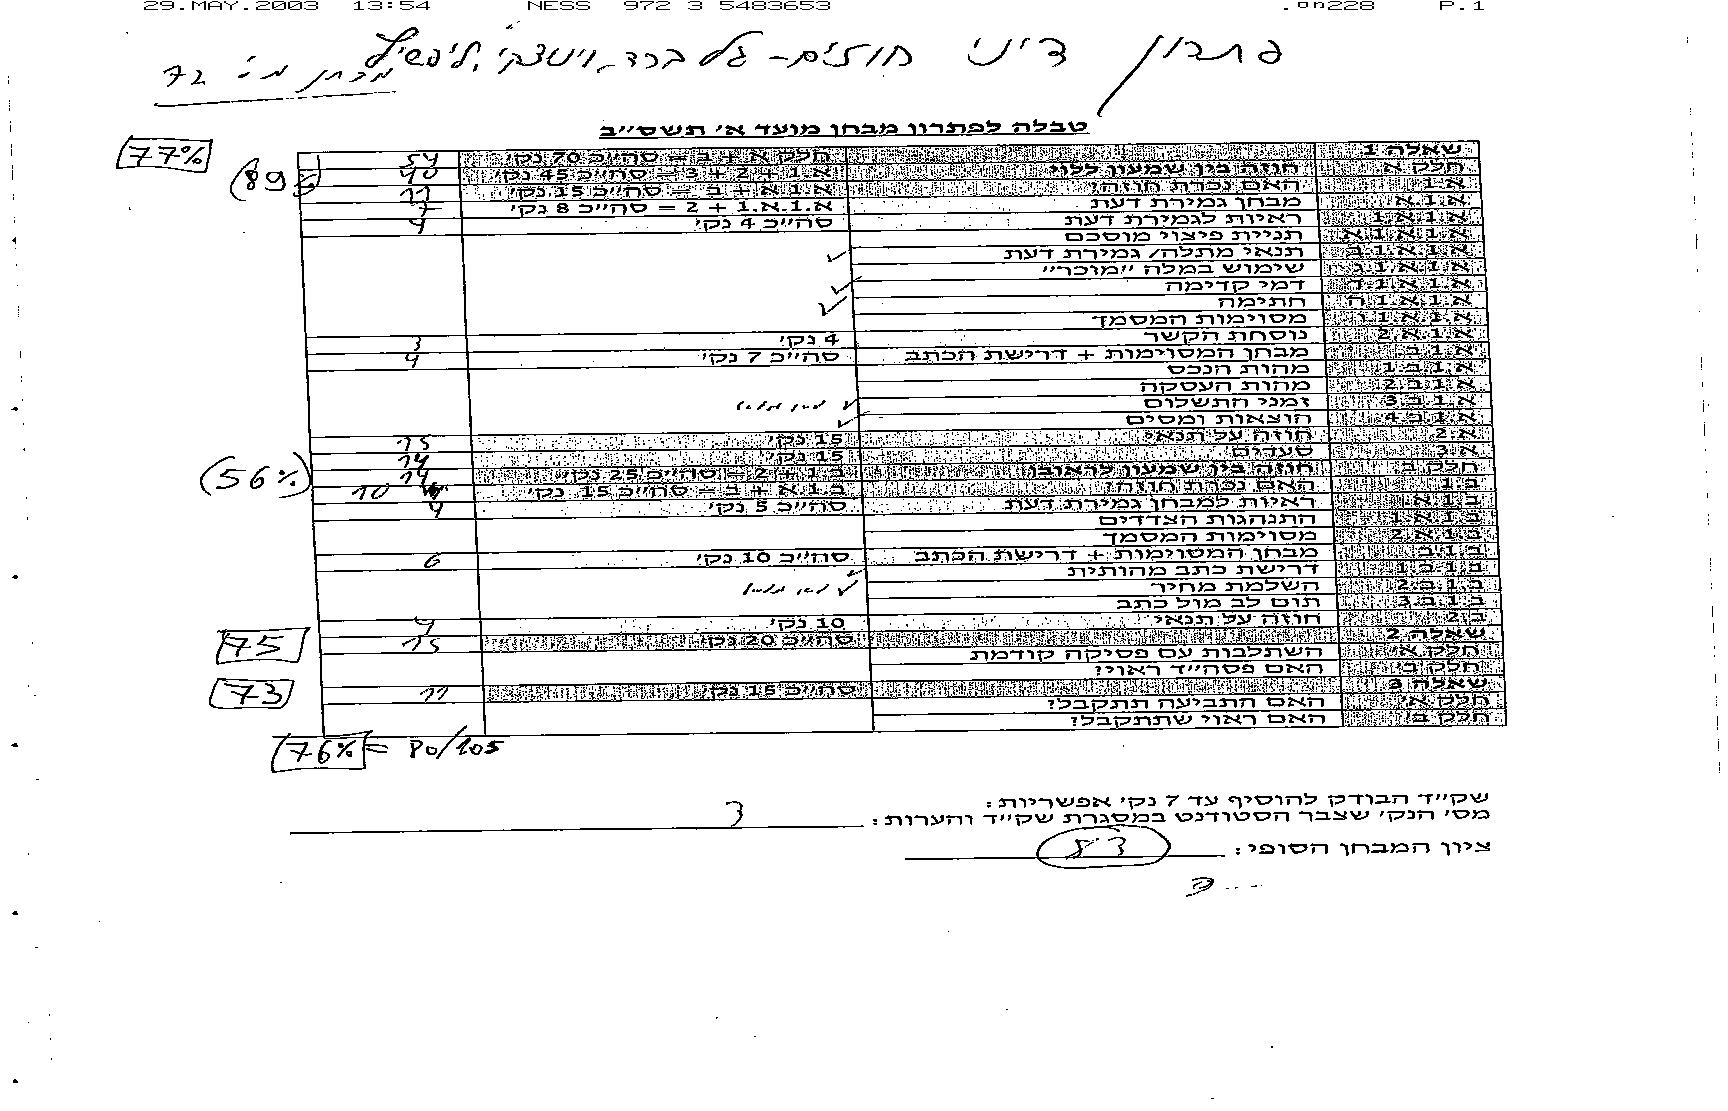 29.MAY.2003 13:54 NESS 972 3 5483653 .מס228 P.1
פתרון דיני חוזים - גל ברד, ויטצקי, ליפשיץ
מבחן מס' 72
טבלה לפתרון מבחן מועד א' תשס"ב
שאלה 1 חלק א + ב = סה"כ 70 נק' 54 77%
חלק א חוזה בין שמעון ללוי א.1 + 2 + 3 = סה"כ 45 נק' 40 (89%)
א.1 האם נכרת חוזה? א.1 א + ב = סה"כ 15 נק' 11
א.1.א מבחן גמירת דעת א.1.א.1 + 2 = סה"כ 8 נק' 7
א.1.א.1 ראיות לגמירת דעת סה"כ 4 נק' 4
א.1.א.1.א תניית פיצוי מוסכם
א.1.א.1.ב תנאי מתלה/ גמירת דעת ✓
א.1.א.1.ג שימוש במלה "מוכר"
א.1.א.1.ד דמי קדימה ✓
א.1.א.1.ה חתימה ✓
א.1.א.1.ו מסוימות המסמך
א.1.א.2 נוסחת הקשר 4 נק' 3
א.1.ב מבחן המסוימות + דרישת הכתב סה"כ 7 נק' 4
א.1.ב.1 מהות הנכס
א.1.ב.2 מהות העסקה
א.1.ב.3 זמני התשלום ✓
א.1.ב.4 הוצאות ומסים ✓
א.2 חוזה על תנאי 15 נק' 15
א.3 סעדים 15 נק' 14
חלק ב חוזה בין שמעון לראובן ב.1 + 2 = סה"כ 25 נק' 14 (56%)
ב.1 האם נכרת חוזה? ב.1 א + ב = סה"כ 15 נק' 10
ב.1.א ראיות למבחן גמירת דעת סה"כ 5 נק' 4
ב.1.א.1 התנהגות הצדדים
ב.1.א.2 מסוימות המסמך
ב.1.ב מבחן המסוימות + דרישת הכתב סה"כ 10 נק' 6
ב.1.ב.1 דרישת כתב מהותית ✓
ב.1.ב.2 השלמת מחיר ✓
ב.1.ב.3 תום לב מול כתב
ב.2 חוזה על תנאי 10 נק' 4
שאלה 2 סה"כ 20 נק' 15 75
חלק א' השתלבות עם פסיקה קודמת
חלק ב' האם פסה"ד ראוי?
שאלה 3 סה"כ 15 נק' 11 73
חלק א' האם התביעה תתקבל?
חלק ב' האם ראוי שתתקבל?
76% = 80/105
שק"ד הבודק להוסיף עד 7 נק' אפשריות:
מס' הנק' שצבר הסטודנט במסגרת שק"ד והערות: 3
ציון המבחן הסופי: 83